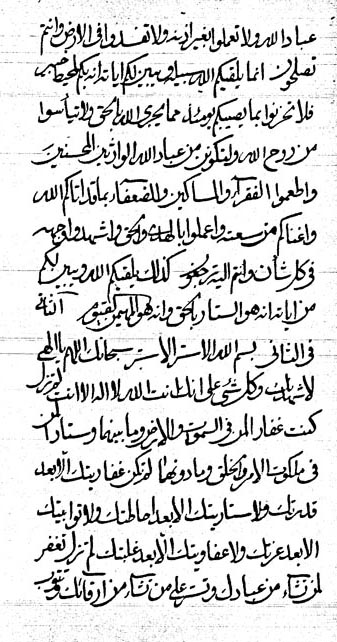 عباد الله ولا تعملوا بغير اذنه ولا تفسدوا فى الارض وانتم
تصلحون انما يلقيكم الله سبيله ويبين لكم اياته انه بكم لمحيط خبير
فلا تحزنوا بما يصيبكم يومئذ مما يجرى الله بالحق ولا تيأسوا
من روح الله ولتكونن من عباد الله الوارثين المحسنين
واطعموا الفقرآء والمساكين والضعفآء بما قد اتاكم الله
واغناكم من سعته واعملوا بالهدى والحق واشهدوا وجهه
فى كل شأن وانتم اليه ترجعون كذلك يلقيكم الله ويبين لكم
من اياته انه هو الستار بالحق وانه هو المهيمن القيوم الثانى
فى الثانى بسم الله الاستر الاستر سبحانك اللهم يا الهى
لاشهدنك وكل شئ على انك انت الله لا اله الا انت لم تزل
كنت غفار لمن فى السموات والارض وما بينهما وستارا لمن
فى ملكوت الامر والخلق وما دونهما لم تكن غفاريتك الا بعد
قدرتك ولا ستاريتك الا بعد احاطتك ولا توابيتك
الا بعد عزتك ولا عفاويتك الا بعد غلبتك لم تزل تغفر
لمن تشآء من عبادك وتستر على من تشآء من ارقائك وتتوب